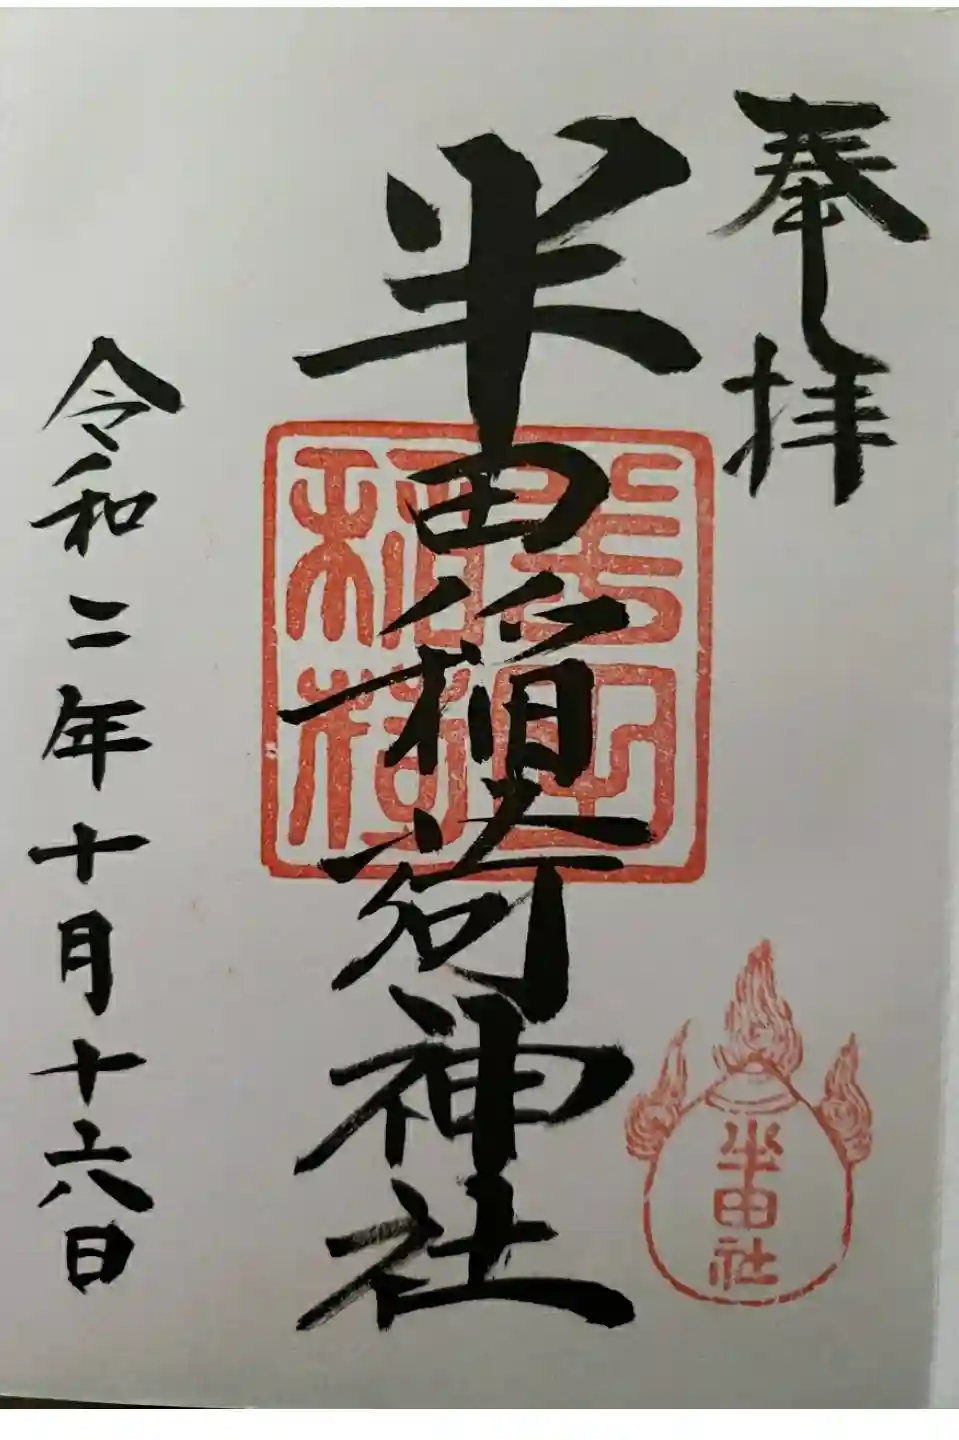 奉拝
半田稲荷神社
半田
稲荷
半田社
令和二年十月十六日